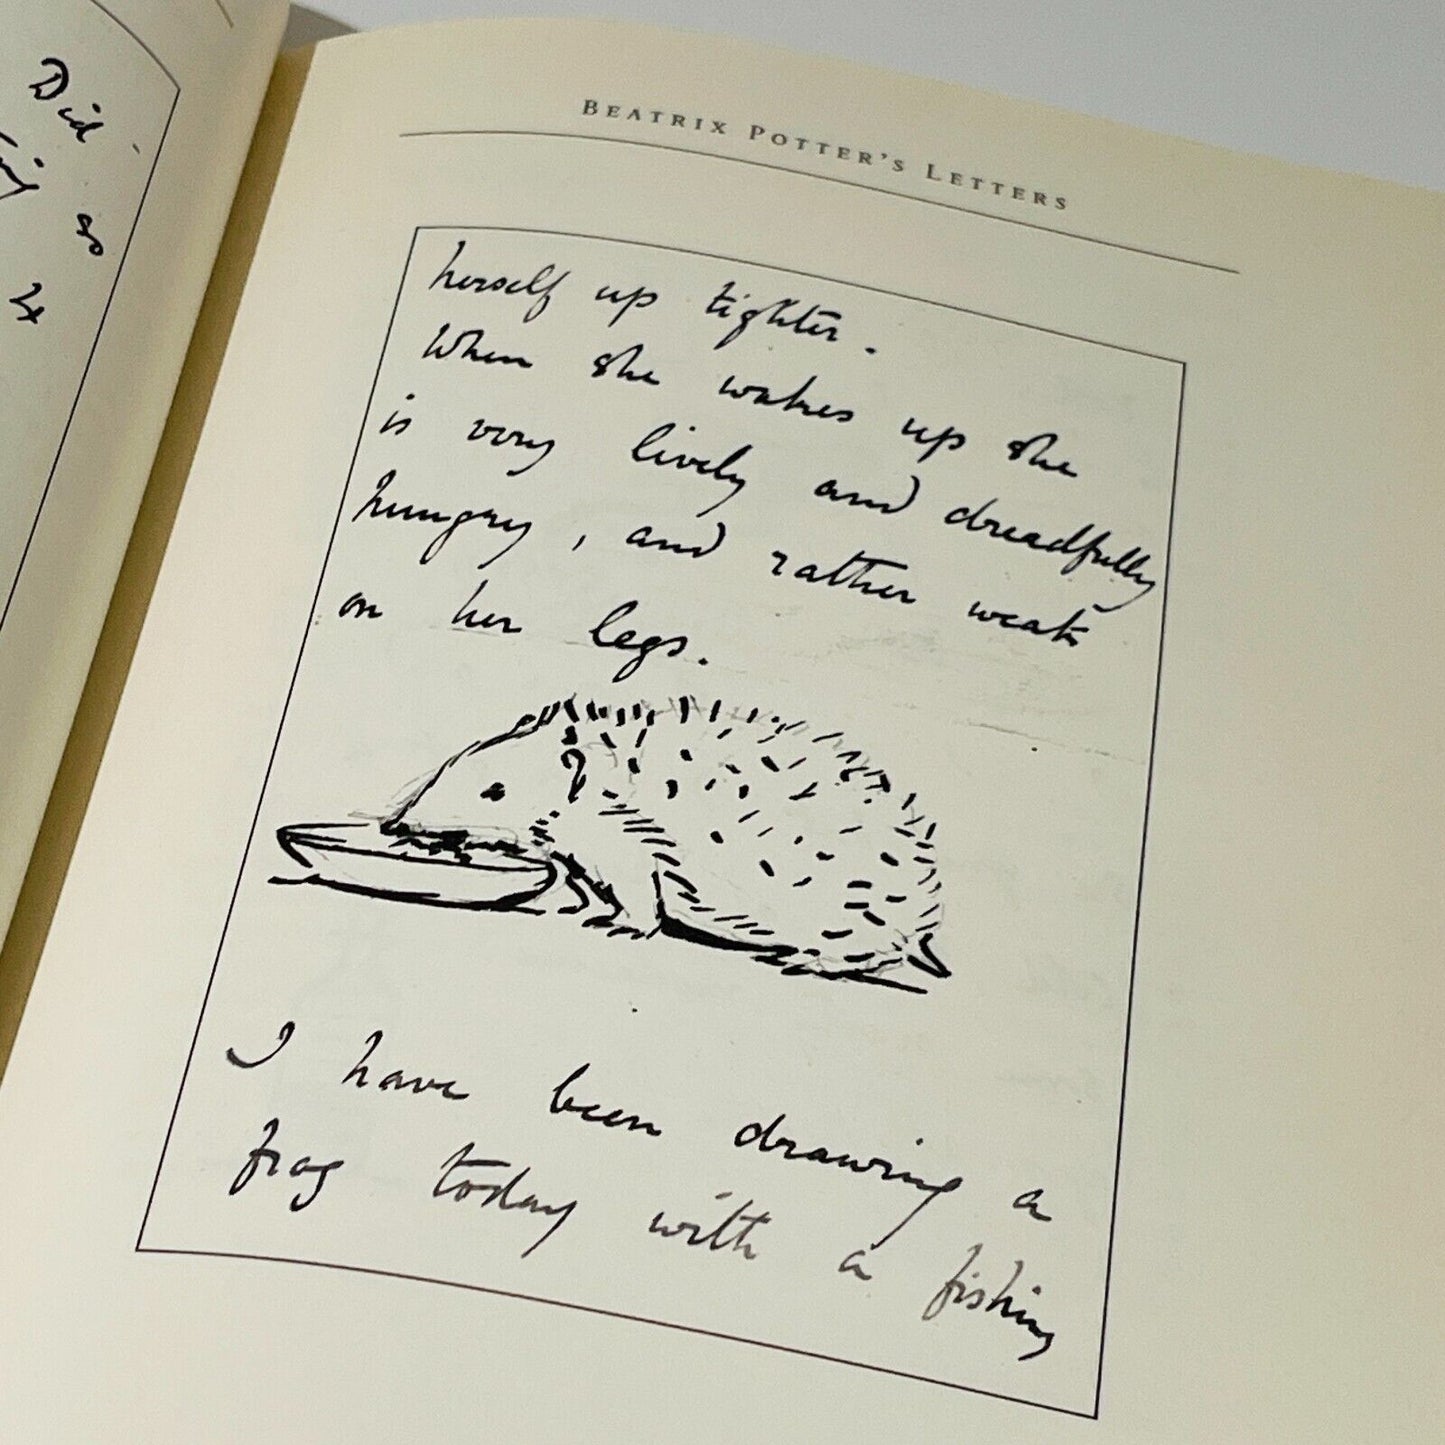 Did
as
BEATRIX POTTER'S LETTERS
herself up tighter.
When she wakes up she
is very lively and dreadfully
hungry, and rather weak
on her legs.
I have been drawing a
frog today with a fishing